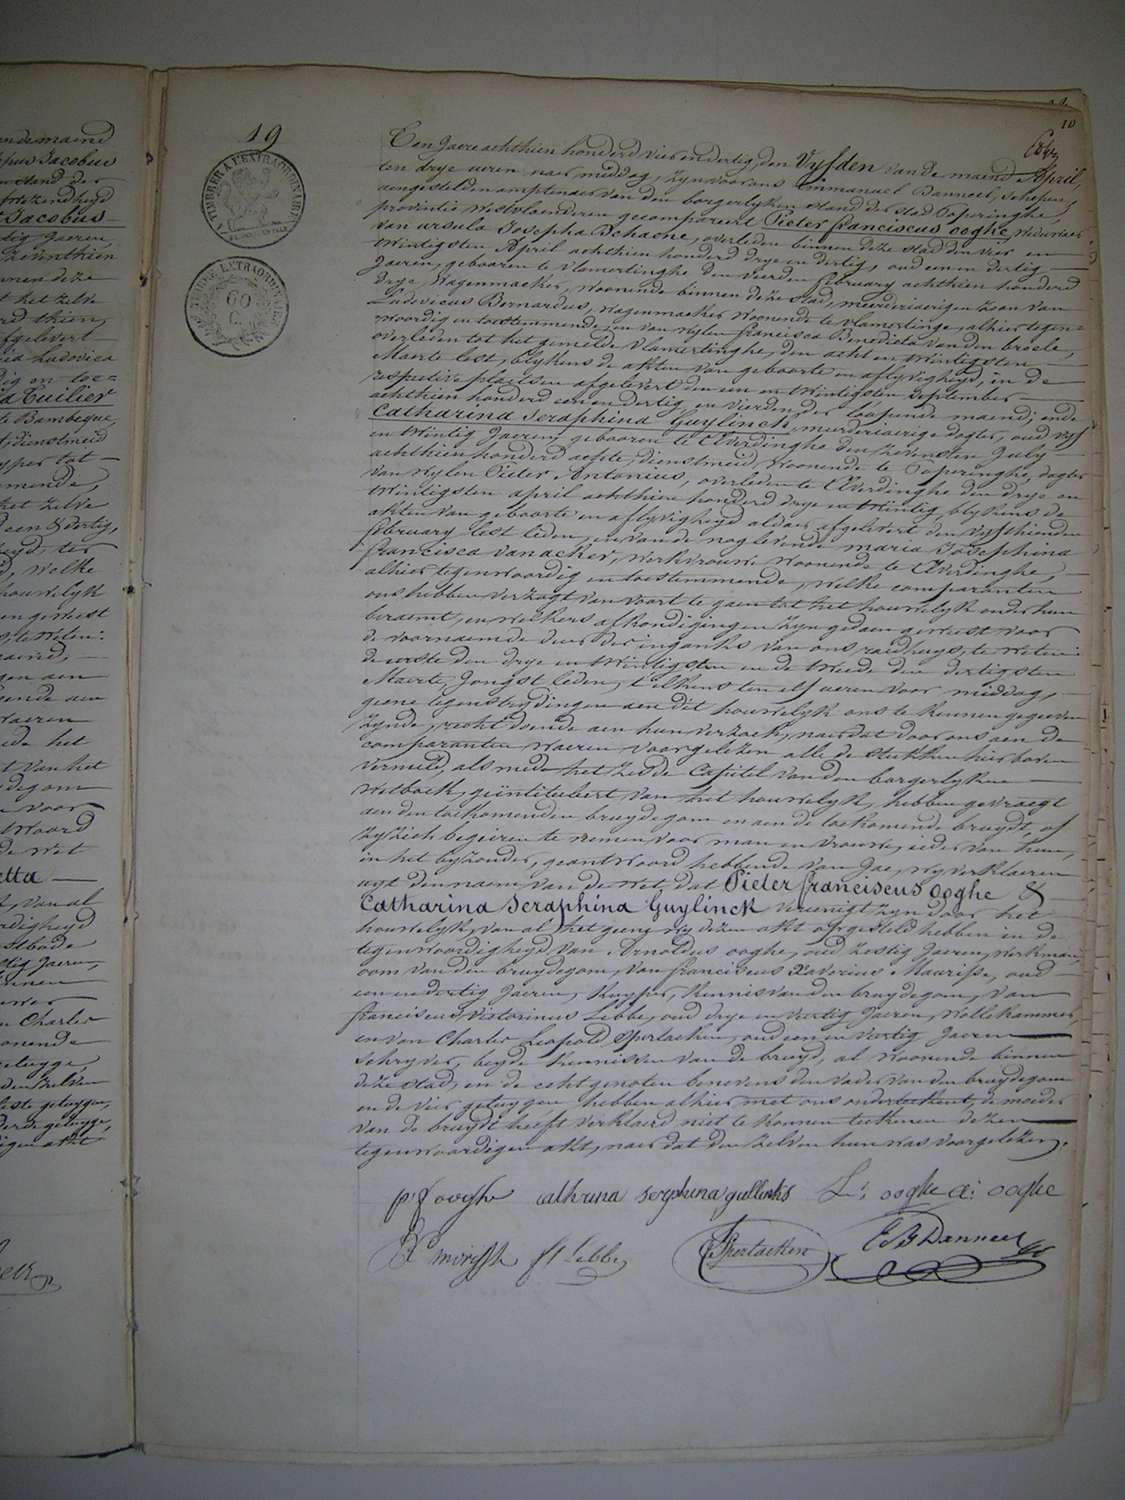 19
10
TIMBRE A L'EXTRAORDINAIRE
TIMBRE EXTRAORDINAIRE
60
C.
Een Jaere achthien honderd vier en dertig, den Vyfden van de maend April,
ten drye ueren naer middag, zyn voor ons Emmanuel Banneel, Schepen,
aengestelden amptenaer van den borgerlyken stand der stad Poperinghe,
provintie Westvlaenderen gecompareert Pieter franciscus ooghe, weduwaer
van ursula Josepha Dehaene, overleden binnen deze stad den vier en
twintigsten April achthien honderd drye en dertig, oud een en dertig
Jaeren, gebooren te Vlamertinghe den vierden february achthien honderd
drye, Wagenmaeker, woonende binnen deze stad, meerderjaerigen zoon van
Ludovicus Bernardus, wagenmaeker woonende te Vlamertinge, alhier tegen=
woordig en toestemmende, en van wylen francisca Benedicta van den broele,
overleden tot het gemelde Vlamertinghe, den acht en twintigsten
Maerte lest, blykens de akten van geboorte en aflyvigheyd, in de
respective plaetsen afgelevert den een en twintigsten september
achthien honderd een en dertig, en vierden der loopende maend; ende
Catharina Seraphina Guylinck, meerderjaerige dogter, oud vyf
en twintig Jaeren, gebooren te Elverdinghe den zevensten July
achthien honderd achte, dienstmeid, woonende te Poperinghe, dogter
van wylen Pieter Antonius, overleden te Elverdinghe den drye en
twintigsten april achthien honderd drye en twintig blykens de
akten van geboorte en aflyvigheyd aldaer afgelevert den vyfthienden
february lest leden, en van de nog levende maria Josephina
francisca van acker, werkvrouw woonende te Elverdinghe,
alhier tegenwoordig en toestemmende, welke comparanten
ons hebben verzogt van voort te gaen tot het houwelyk onder hun
beraemt, en welkers afkondigingen zyn gedaen geweest voor
de voornaemde deur der inganks van ons raedhuys, te weten:
de eerste den drye en twintigsten en de tweede den dertigsten
Maerte, Jongst leden, telkens ten elf ueren voor middag,
geene tegenstrydingen aen dit houwelyk ons te kennen gegeeven
zynde, recht doende aen hun verzoek, naer dat door ons aen de
comparanten waeren voorgelezen alle de stukken hier boven
vermeld, als mede het zesde Capitel van den borgerlyken
wetboek, geïntituleert van het houwelyk, hebben gevraegt
aen den toekomenden bruydegom en aen de toekomende bruydt, of
zy zich begeeren te nemen voor man en vrouwe, ieder van hun,
in het byzonder, geantwoord hebbende van Jae, wy verklaeren
uyt den naem van de wet, dat Pieter franciscus ooghe &
Catharina Seraphina Guylinck vereenigt zyn door het
houwelyk, van al het geene wy dezen akt opgesteld hebben in de
tegenwoordigheyd van Arnoldus ooghe, oud zestig Jaeren, werkman,
oom van den bruydegom, van franciscus Xaverius Maurisse, oud
een en dertig Jaeren, kuyper, kennis van den bruydegom, van
franciscus Victorinus Lebbe, oud drye en veertig Jaeren, wollekammer,
en van Charles Leopold Sperlaeken, oud een en veertig Jaeren
schryver, beyde kennissen van de bruyd, al woonende binnen
deze stad, en de echtgenoten benevens den vader van den bruydegom
en de vier getuygen hebben alhier met ons onderteekent, de moeder
van de bruydt heeft verklaerd niet te konnen teekenen dezen
tegenwoordigen akt, naer dat den zelven hun was voorgelezen.
p: f ooghe cathrina serphina gullinks L: ooghe A: ooghe
f lebbe Sperlaeken E B Banneel